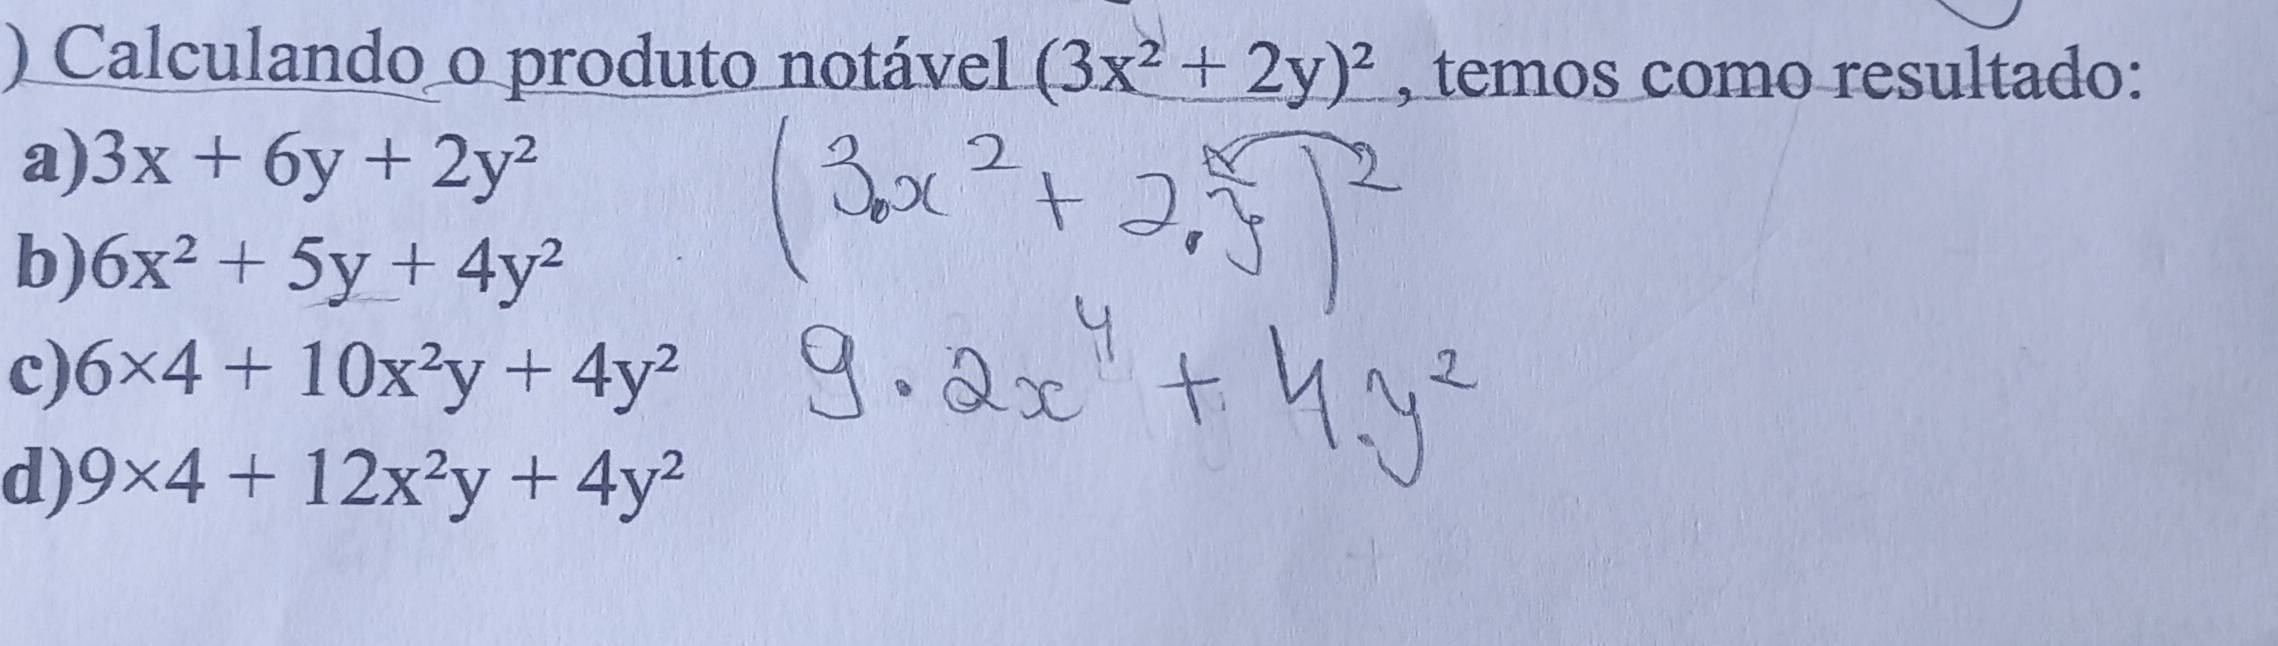 ) Calculando o produto notável (3x² + 2y)² , temos como resultado:
a)3x + 6y + 2y²
b)6x² + 5y + 4y²
c)6×4 + 10x²y + 4y²
d)9×4 + 12x²y + 4y²
(3.x² + 2.y)²
9 . 2x⁴ + 4.y²